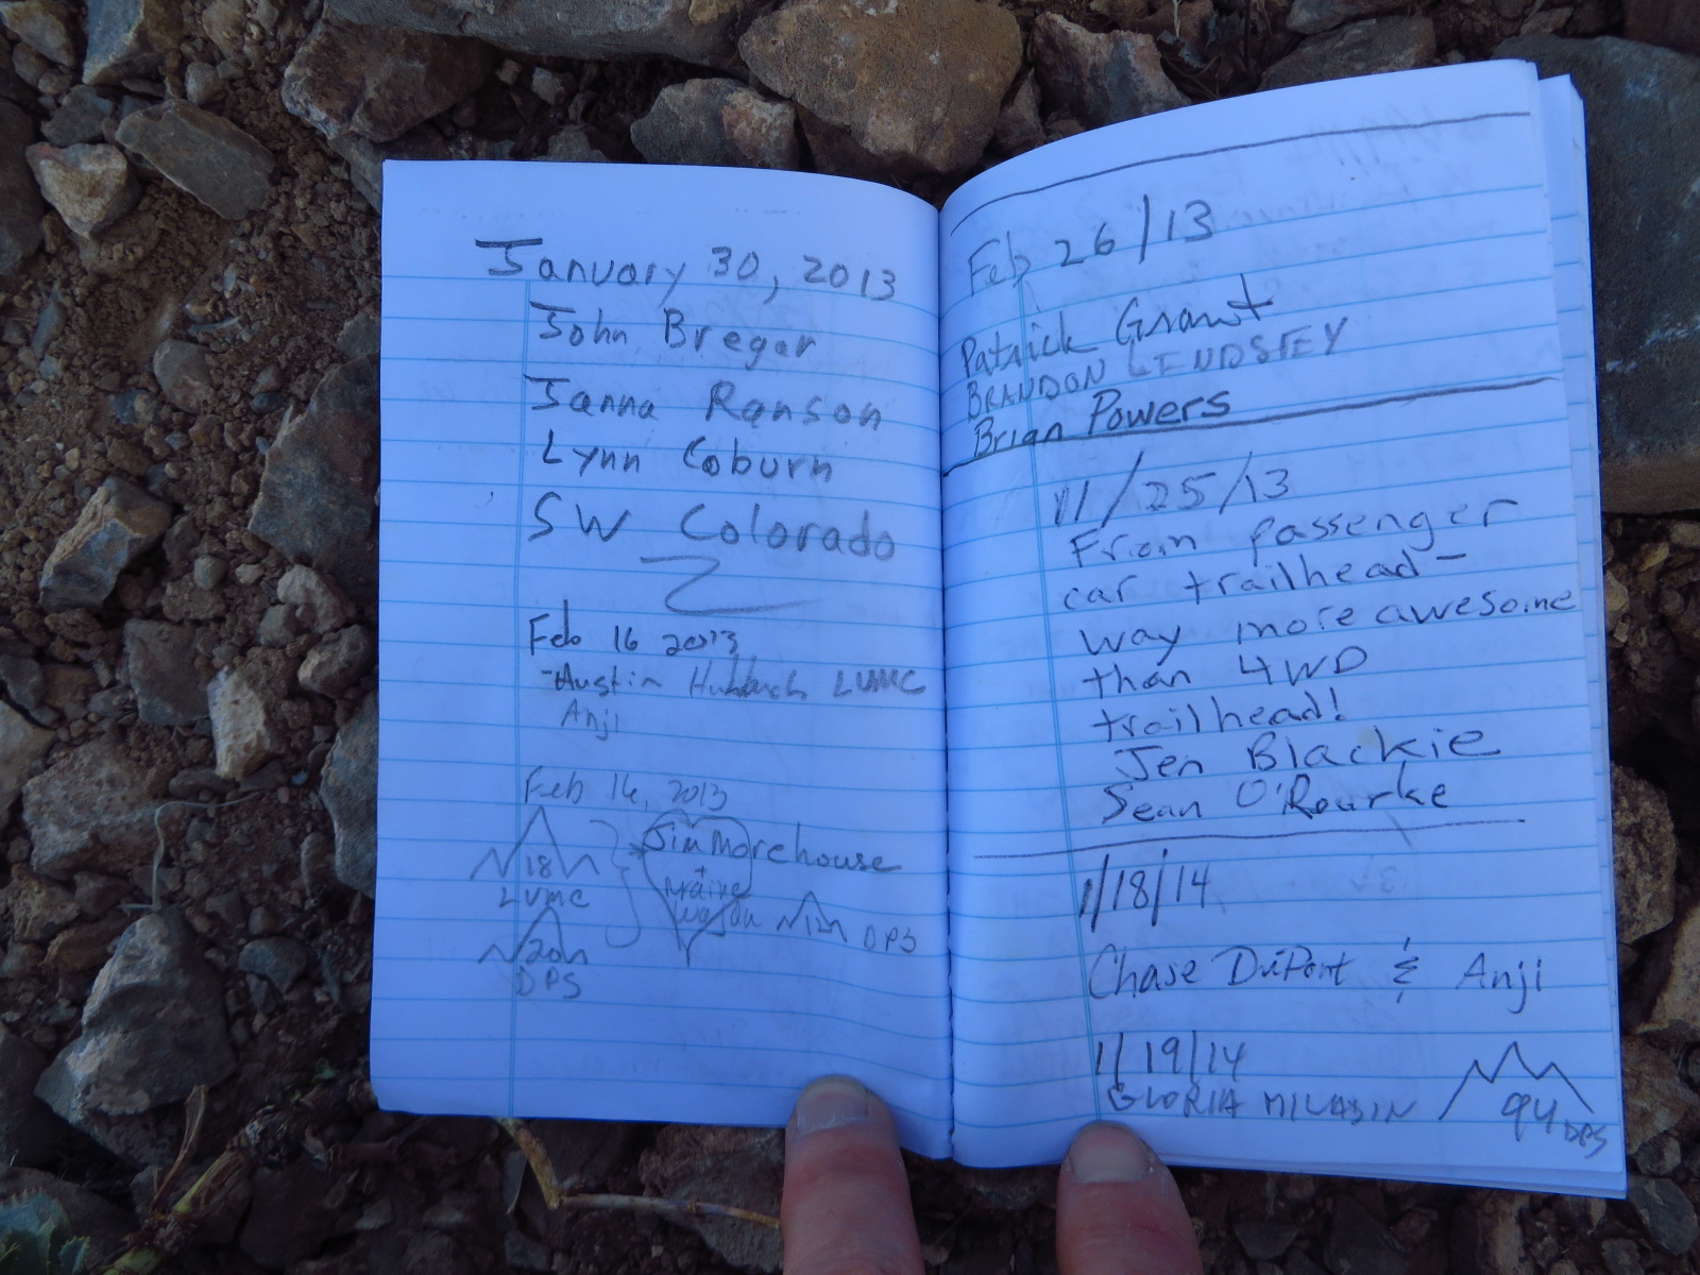 January 30, 2013
John Bregar
Janna Ranson
Lynn Coburn
SW Colorado
Feb 16 2013
-Austin LVMC
Anji
Feb 16, 2013
Jim Morehouse
18
+
LVMC
DPS
20
DPS
Feb 26/13
Patrick Grant
BRANDON LINDSLEY
Brian Powers
11/25/13
From passenger
car trailhead -
way more awesome
than 4WD
trailhead!
Jen Blackie
Sean O'Rourke
1/18/14
Chase DuPont & Anji
1/19/14
GLORIA MILADIN 94 DPS